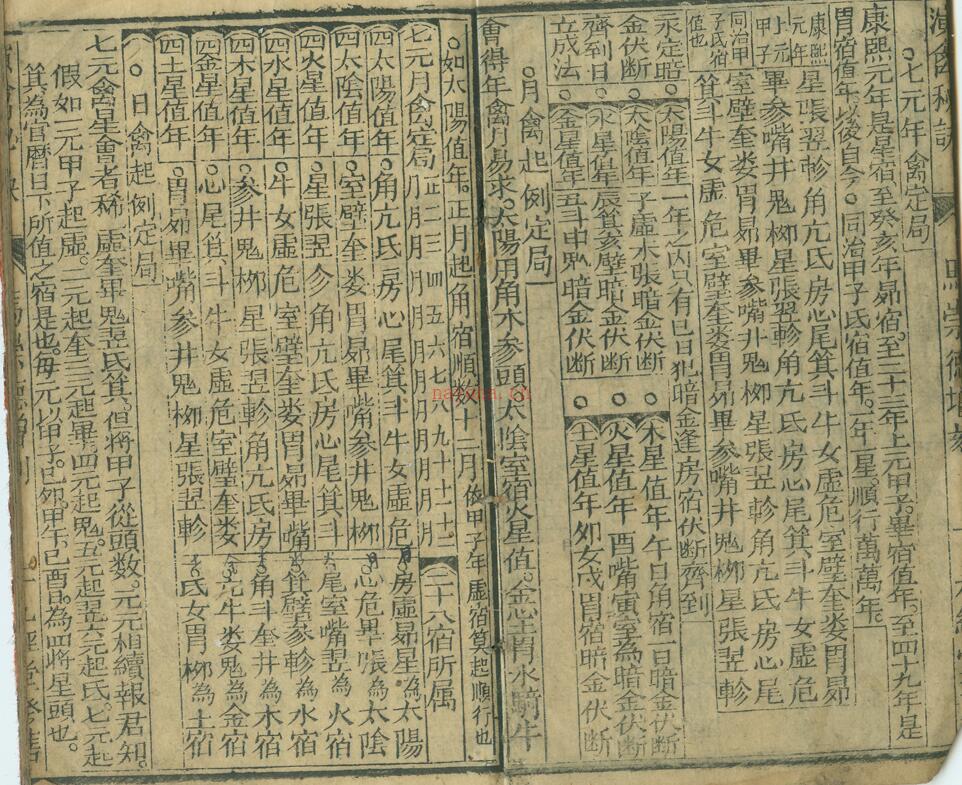 演禽秘訣
○七元年禽定局
康熙元年是星宿至癸亥年昴宿。至二十三年上元甲子。畢宿值年。至四十九年是
胃宿值年。以後自今○同治甲子氐宿值年。一年一星。順行萬萬年。
康熙元年 星張翌軫角亢氐房心尾箕斗牛女虛危室壁奎娄胃昴
上元甲子 畢參嘴井鬼柳星張翌軫角亢氐房心尾箕斗牛女虛危
同治甲子氐宿值也 室壁奎娄胃昴畢參嘴井鬼柳星張翌軫角亢氐房心尾
箕斗牛女虛危室壁奎娄胃昴畢參嘴井鬼柳星張翌軫
永定暗金伏断齊到日立成法
○太陽值年 一年之内只有巳日犯暗金逢房宿伏断齊到
○太陰值年 子虛未張暗金伏断
○水星值年 辰箕亥壁暗金伏断
○金星值年 丑斗申鬼暗金伏断
○木星值年 午日角宿一日暗金伏断
○火星值年 酉嘴寅室為暗金伏断
○土星值年 卯女戌胃宿暗金伏断
○月禽起例定局
會得年禽月易求。太陽用角木參頭。太陰室宿火星值。金心土胃水騎牛
○如太陽值年。正月起角宿順数十二月 係甲子年虛宿算起順行也
七元月禽定局 正月二月三月四月五月六月七月八月九月十月十一月十二月
四太陽值年 ○角亢氐房心尾箕斗牛女虛危
四太陰值年 ○室壁奎娄胃昴畢嘴參井鬼柳
四火星值年 ○星張翌軫角亢氐房心尾箕斗
四水星值年 ○牛女虛危室壁奎娄胃昴畢嘴
四木星值年 ○參井鬼柳星張翌軫角亢氐房
四金星值年 ○心尾箕斗牛女虛危室壁奎娄
四土星值年 ○胃昴畢嘴參井鬼柳星張翌軫
二十八宿所属
房虛昴星為太陽
心危畢張為太陰
尾室嘴翌為火宿
箕壁參軫為水宿
角斗奎井為木宿
亢牛娄鬼為金宿
氐女胃柳為土宿
○日禽起例定局
七元禽星會者稀。虛奎畢鬼翌氐箕。但將甲子從頭数。元元相續報君知。
假如一元甲子起虛。二元起奎。三元起畢。四元起鬼。五元起翌。六元起氐。七元起
箕為官曆日下所值之宿是也。每一元以甲子。己卯。甲午。己酉。為四將星頭也。